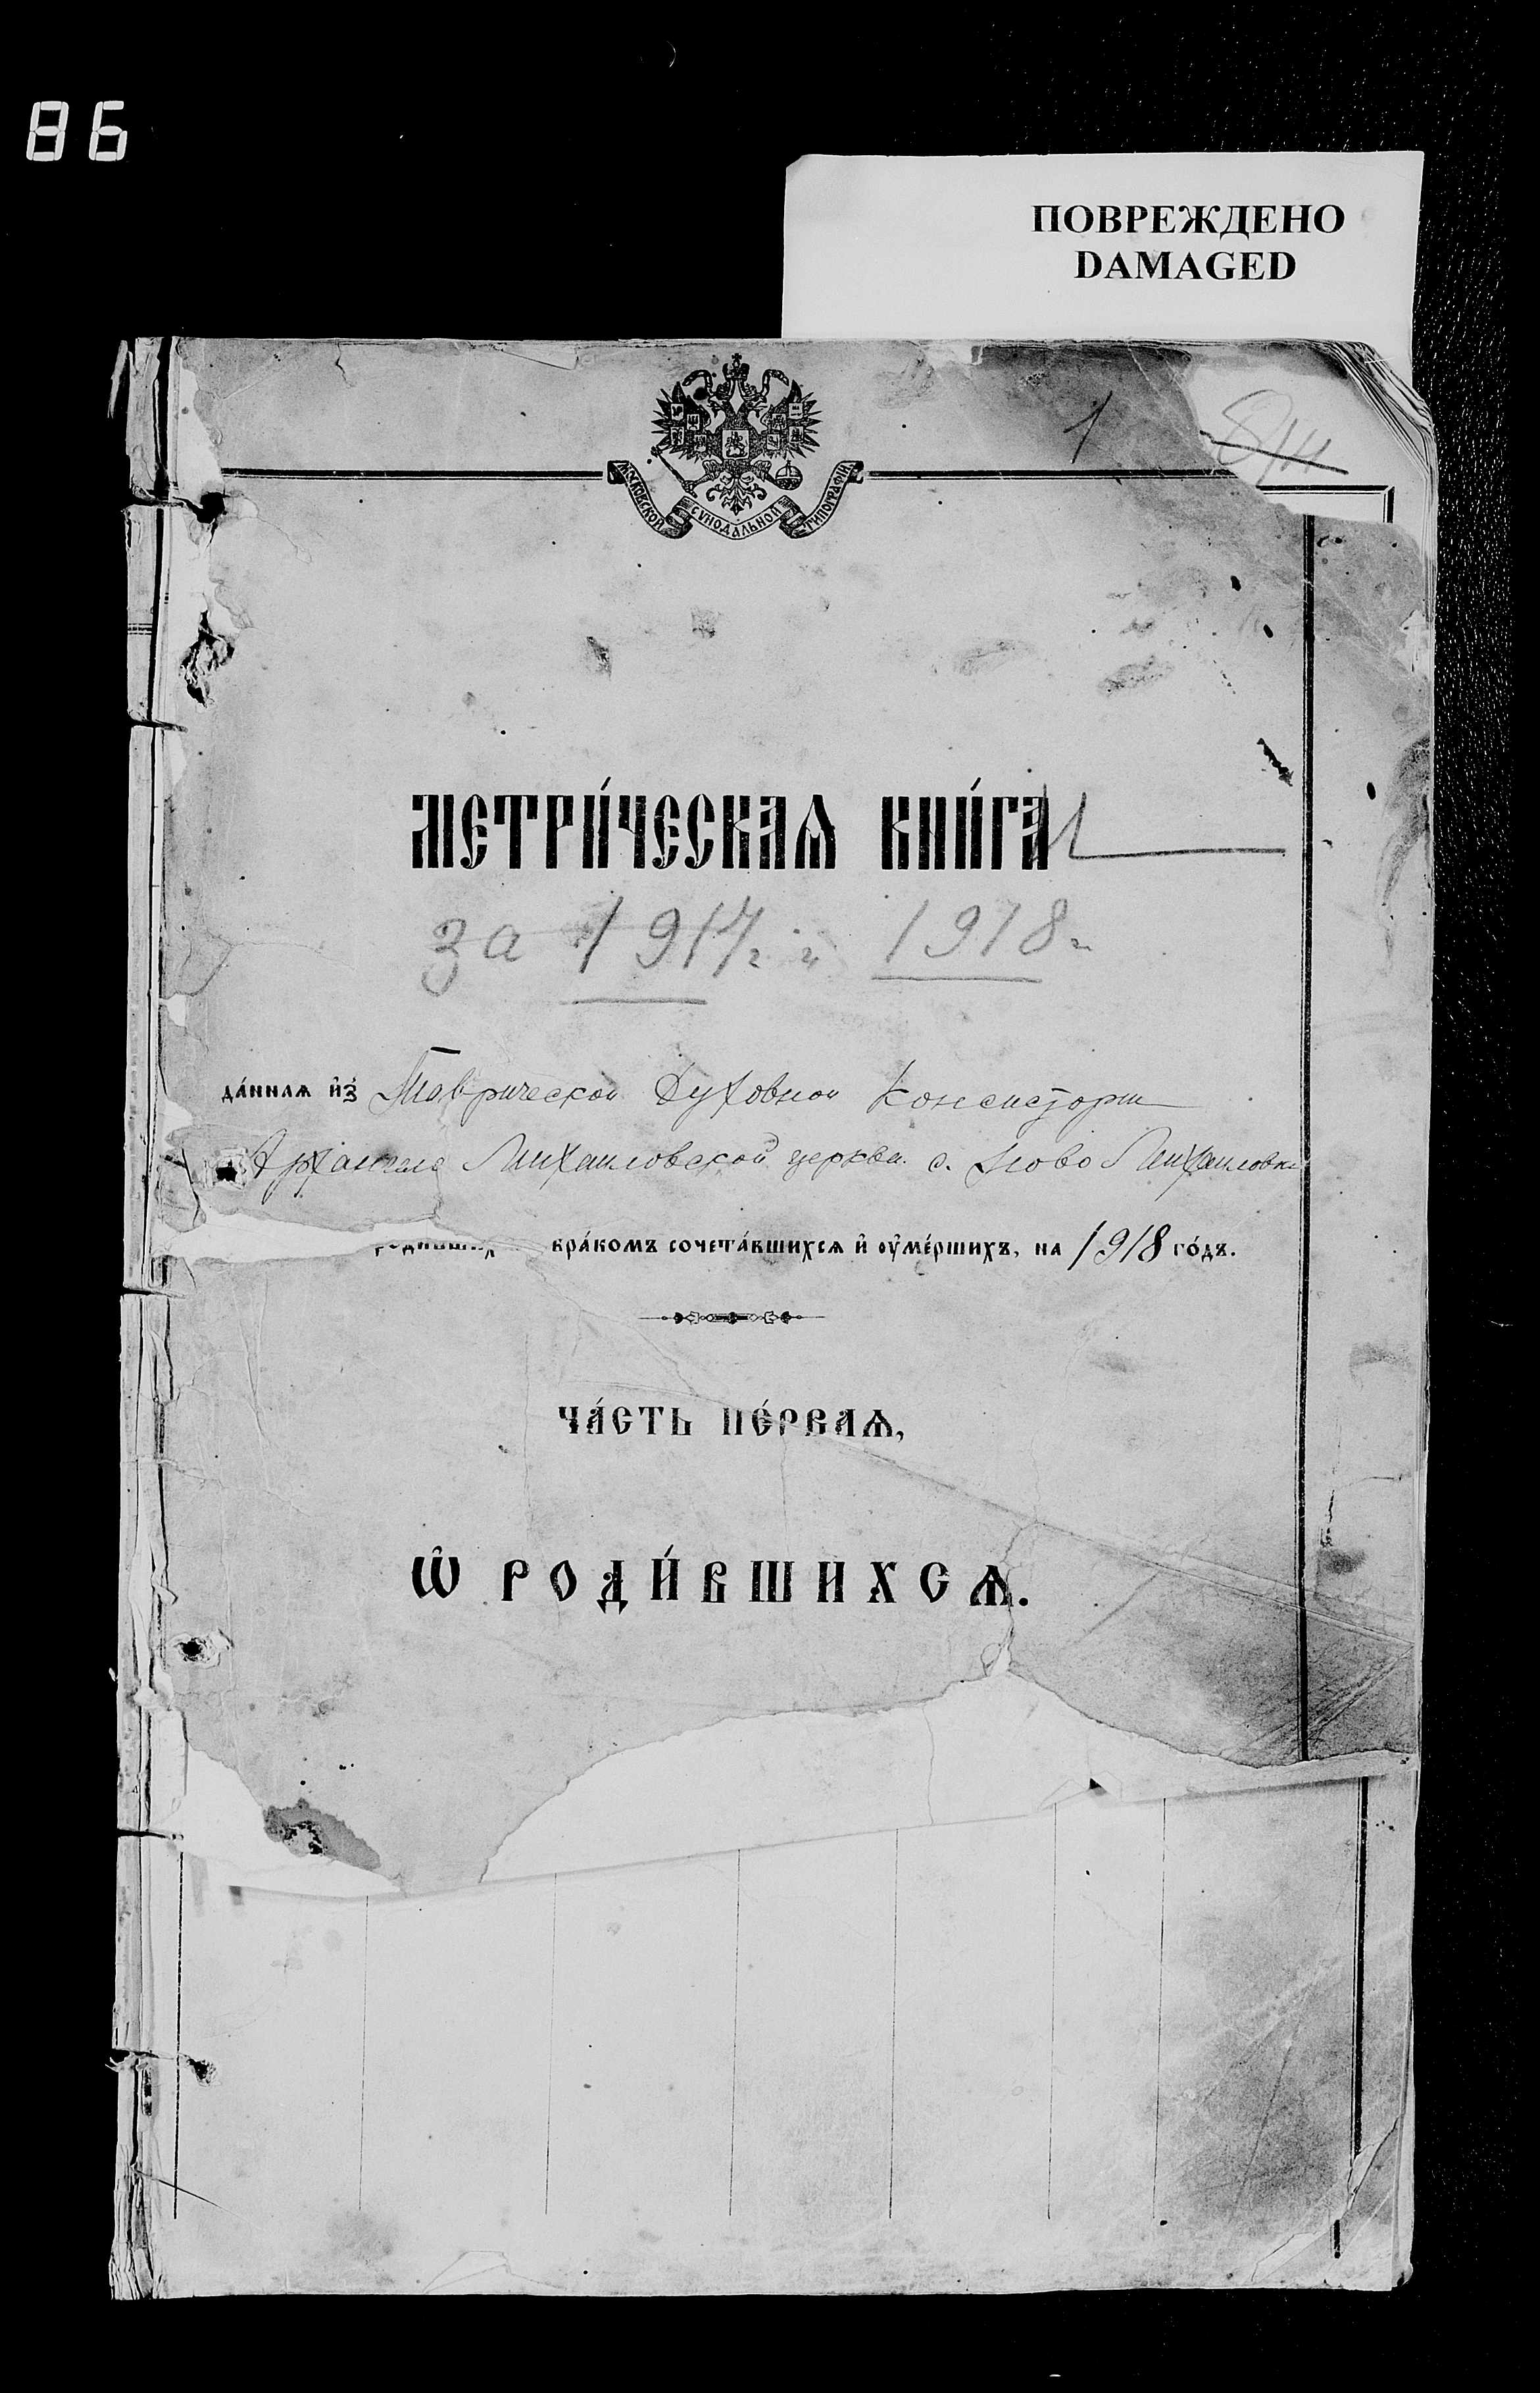 86
ПОВРЕЖДЕНО
DAMAGED
1
МОСКОВСКОЙ СѴНОДА́ЛЬНОЙ ТИПОГРАФІИ
МЕТРИ́ЧЕСКАѦ КНИ́ГА
за 1917 г. и 1918 г.
да́ннаѧ и҆з̾ Таврической Духовной Консисторіи
Архангело Михаиловской церкви с. Ново Михаиловки
бра́комъ сочета́вшихсѧ и҆ оу҆ме́ршихъ, на 1918 го́дъ.
ЧА́СТЬ ПЕ́РВАѦ,
Ѽ РОДИ́ВШИХСѦ.